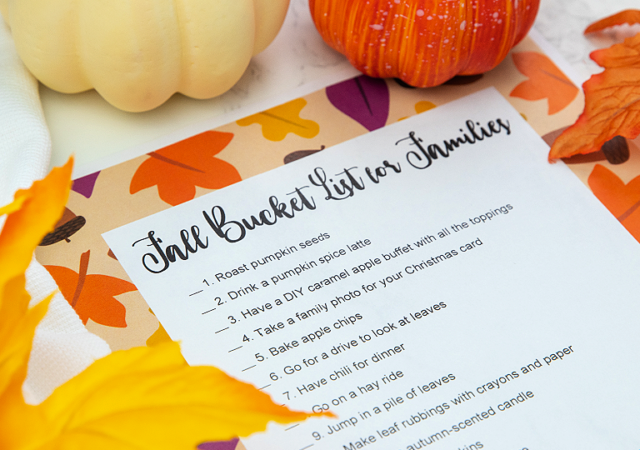 Fall Bucket List for Families
1. Roast pumpkin seeds
2. Drink a pumpkin spice latte
3. Have a DIY caramel apple buffet with all the toppings
4. Take a family photo for your Christmas card
5. Bake apple chips
6. Go for a drive to look at leaves
7. Have chili for dinner
Go on a hay ride
9. Jump in a pile of leaves
Make leaf rubbings with crayons and paper
autumn-scented candle